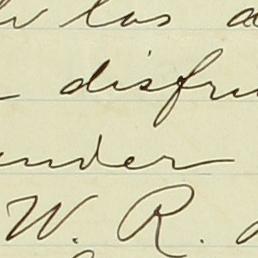 los
disfru
ender
W. R.